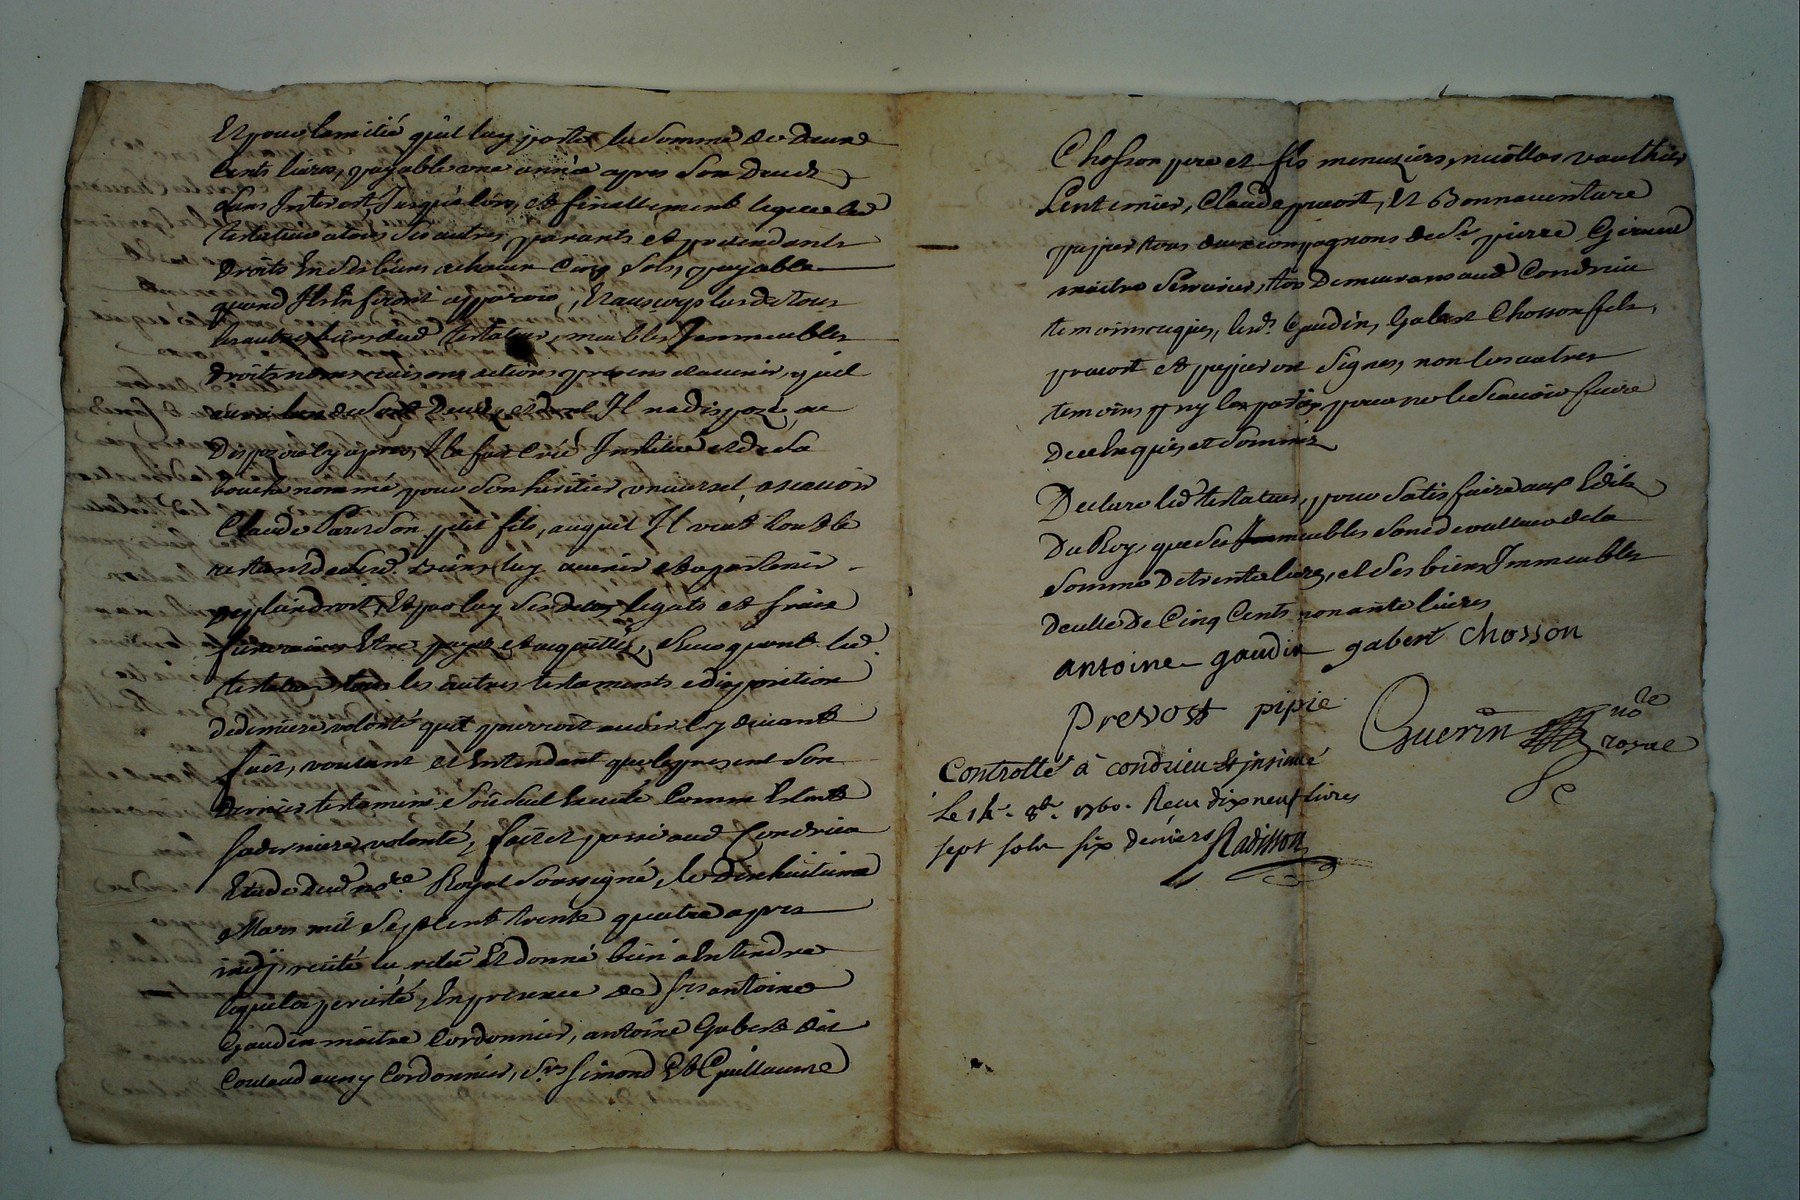 Et pour lamitié quil luy porte la somme de deux
Cents livres, payable une année apres son deces
sans Interest Jusqu'alors, et finallement legue led
testateur a tous ses autres parants et pretendants
droits En ses biens a chacun Cinq sols, payable
quand Ils En feront apparoir, Et au surplus de tous
les autres biens dud testateur, meubles Immeubles
droits noms raisons actions presens et avenir, quil
deces, et dont Il na dispozé, ne
dispoze cy apres, Il a fait créé Institué et de sa
bouche nommé pour son heritier universel, a scavoir
Claude petit fils, auquel Il veut tout le
restant de sesd biens luy avenir et apartenir
de plain droit, Et par luy ses dettes legats et fraix
funeraires Etre payés et acquittés, Revoquant led
testateur tous les autres testaments et disposition
de derniere volonté quil pourroit avoir cy devant
fait, voulant et Entendant que le present son
dernier testament soit seul Executé Comme Estant
sa derniere volonté, fait et passé aud Condrieu
Etude dud nore Royal soussigné, le dixhuitieme
Mars mil sept cent trente quatre apres
midy recité lu relu Et donné bien a Entendre
lequel a persisté, En presence de srs antoine
Gaudin maitre Cordonnier, antoine Gabert dit
Coutaud aussy Cordonnier, srs Simond Et Guillaume
Chosson pere et fils menuziers, nicollas vauthier
Lenternier, Claude prevost, Et Bonnaventure
pipier tous deux compagnons de sr pierre Giraud
maitre Serrurier, tous demeurans aud Condrieu
temoins requis, lesd. Gaudin, Gabert Chosson fils,
prevost et pipier ont signes, non les autres
temoins ny la partie pour ne le scavoir faire
de ce Enquis et sommés
Declare led testateur, pour satisfaire aux Edits
Du Roy, que ses meubles sont de valleur de la
somme de trente livres, et ses biens Immeubles
de celle de Cinq Cents nonante livres
antoine gaudin gabert Chosson
prevost pipie
Guerin nore
royal
Controllé à condrieu Et insinué
Le 14e. 8bre. 1760. Recu dix neuf livres
sept sols six deniers Radisson